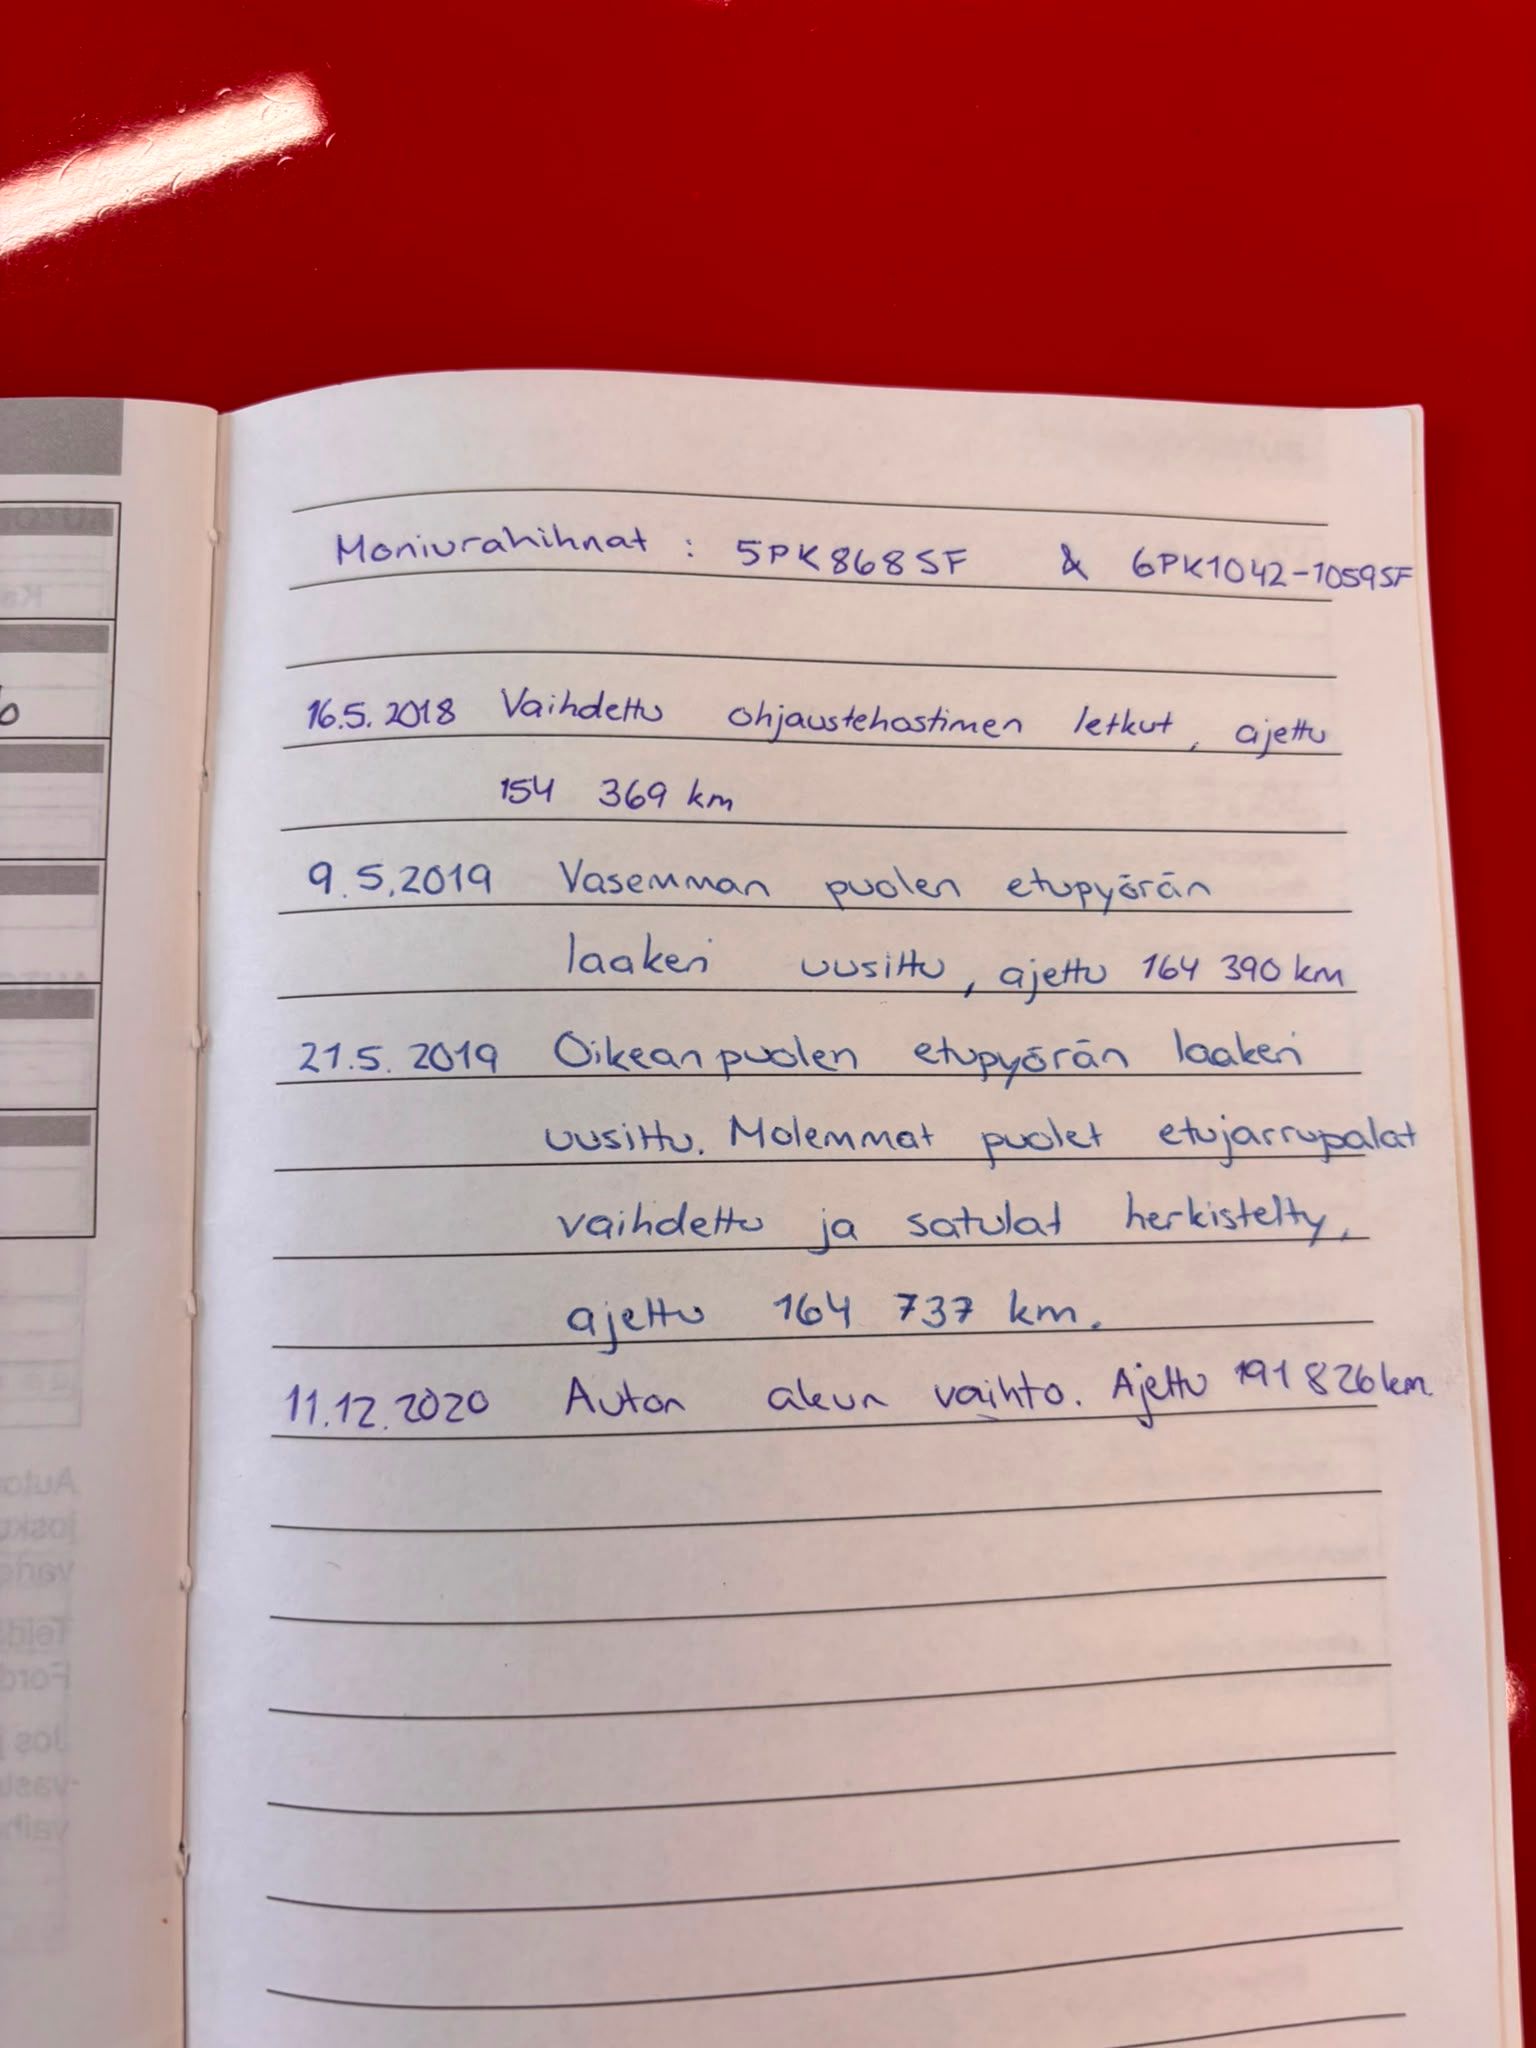 Moniurahihnat : 5PK868SF & 6PK1042-1059SF
16.5.2018 Vaihdettu ohjaustehostimen letkut, ajettu
154 369 km
9.5.2019 Vasemman puolen etupyörän
laakeri uusittu, ajettu 164 390 km
21.5.2019 Oikean puolen etupyörän laakeri
uusittu. Molemmat puolet etujarrupalat
vaihdettu ja satulat herkistelty,
ajettu 164 737 km.
11.12.2020 Auton akun vaihto. Ajettu 191 826 km